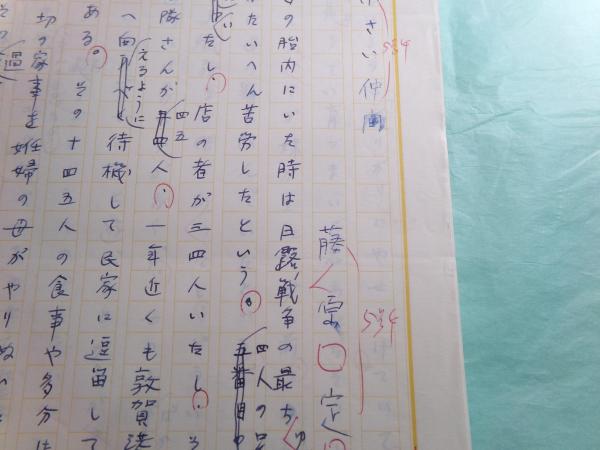 さい仲間
5号4
藤宗定
5号4
の胎内にいた時は日露戦争の最ちゅ
四人の兄
五番目の
たいへん苦労したという。
たし、店の者が三四人いたし、そ
隊さんが四五人、一年近くも敦賀港
えるように
へ向
待機して民家に逗留して
ある。その十四五人の食事や多分は
切の家事を妊婦の母がやりぬい